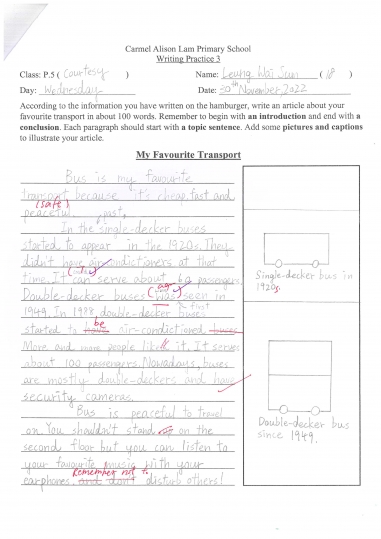 Carmel Alison Lam Primary School
Writing Practice 3
Class: P.5 ( Courtesy ) Name: Leung Wai Sun ( 18 )
Day: Wednesday Date: 30th November, 2022
According to the information you have written on the hamburger, write an article about your
favourite transport in about 100 words. Remember to begin with an introduction and end with a
conclusion. Each paragraph should start with a topic sentence. Add some pictures and captions
to illustrate your article.
My Favourite Transport
Bus is my favourite
transport because it's cheap, fast and
(safe)
peaceful. past,
In the single-decker buses
started to appear in the 1920s. They
didn't have air-condictioners at that
time. It can serve about passengers.
Double-decker buses (was) seen in
1949. In 1988, double-decker buses
first
started to be air-condictioned buses.
More and more people like it. It serves
about 100 passengers. Nowadays, buses
are mostly double-deckers and have
security cameras.
Bus is peaceful to travel
on. You shouldn't stand on the
second floor but you can listen to
your favourite music with your
Remember not to
earphones. and don't disturb others!
Single-decker bus in
1920s.
Double-decker bus
since 1949.